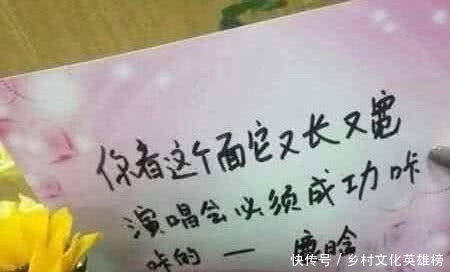 你看这个面它又长又宽
演唱会必须成功咔
咔的 — 鹿晗
快传号/乡村文化英雄榜